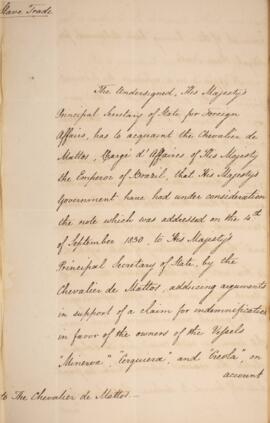 Slave Trade
The Undersigned, His Majesty's
Principal Secretary of State for Foreign
Affairs, has to acquaint the Chevalier de
Mattos, Chargé d'Affaires of His Majesty
the Emperor of Brazil, that His Majesty's
Government have had under consideration
the note which was addressed on the 4th
of September 1830, to His Majesty's
Principal Secretary of State, by the
Chevalier de Mattos, adducing arguments
in support of a claim for indemnification
in favor of the owners of the Vessels
"Minerva", "Cerqueira", and "Creola", on
account
to The Chevalier de Mattos.—